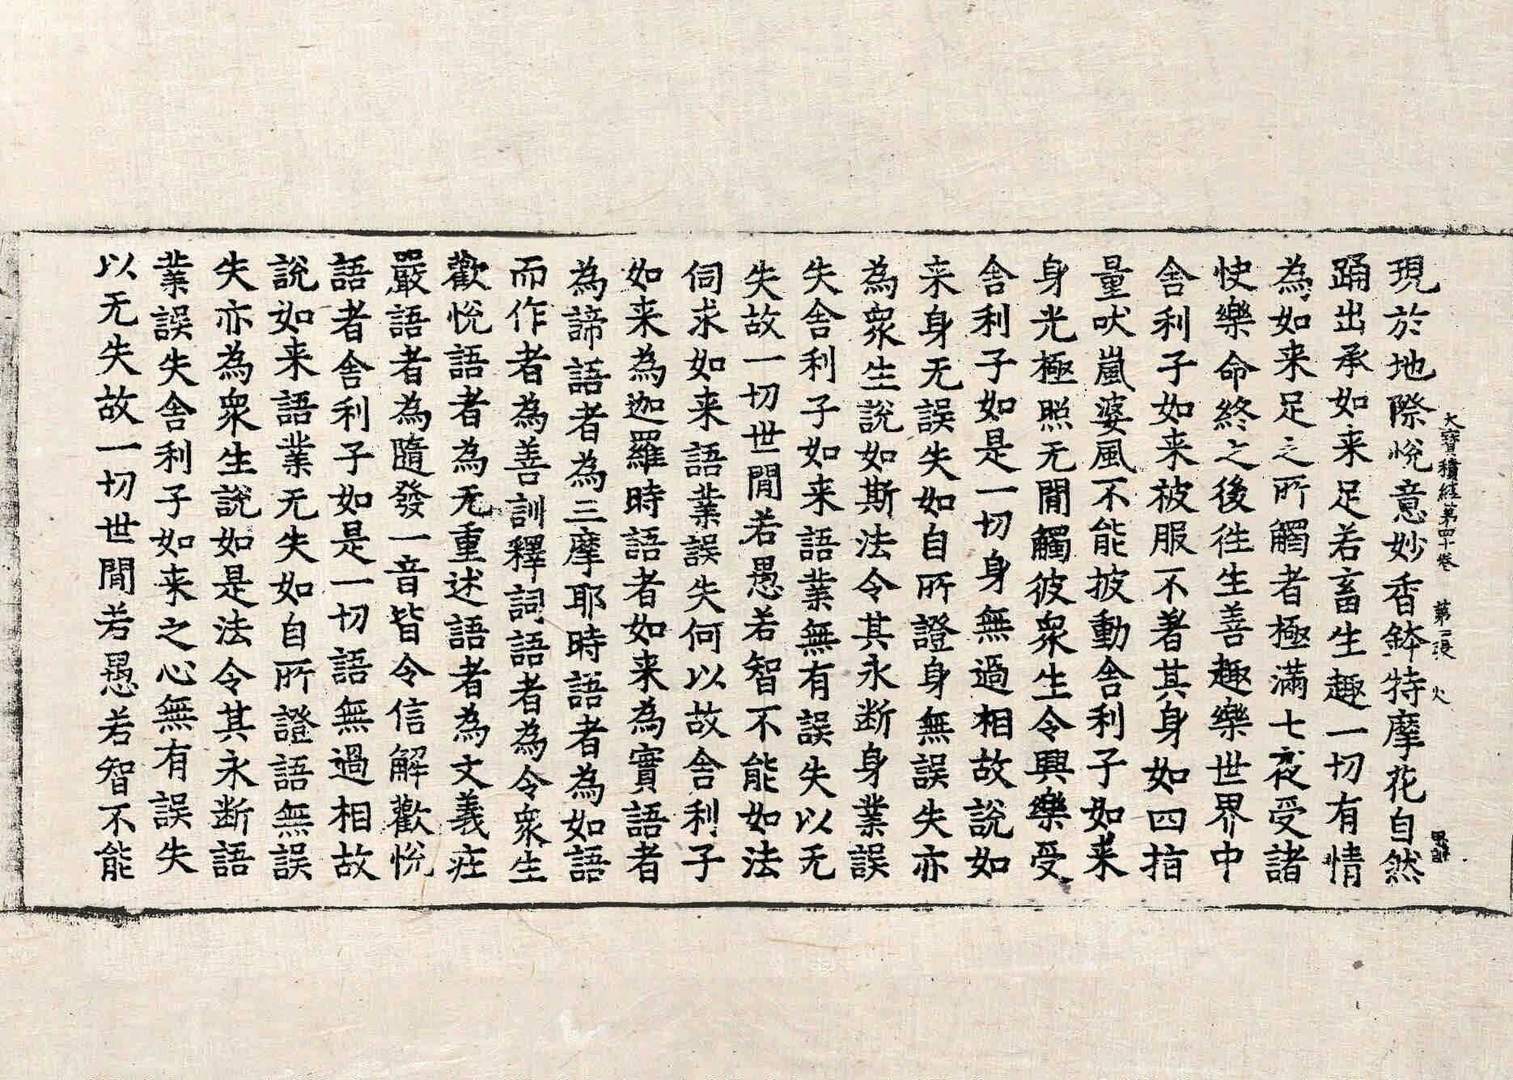 大寶積経第四十卷 第 張 火
現於地際悅意妙香鉢特摩花自然
踊出承如来足若畜生趣一切有情
為如来足之所觸者極滿七夜受諸
快樂命終之後往生善趣樂世界中
舍利子如来被服不著其身如四指
量吠嵐婆風不能披動舍利子如来
身光極照无間觸彼衆生令興樂受
舍利子如是一切身無過相故說如
来身无誤失如自所證身無誤失亦
為衆生說如斯法令其永断身業誤
失舍利子如来語業無有誤失以无
失故一切世間若愚若智不能如法
伺求如来語業誤失何以故舍利子
如来為迦羅時語者如来為實語者
為諦語者為三摩耶時語者為如語
而作者為善訓釋詞語者為令衆生
歡悅語者為无重述語者為文義庄
嚴語者為隨發一音皆令信解歡悅
語者舍利子如是一切語無過相故
說如来語業无失如自所證語無誤
失亦為衆生說如是法令其永断語
業誤失舍利子如来之心無有誤失
以无失故一切世間若愚若智不能